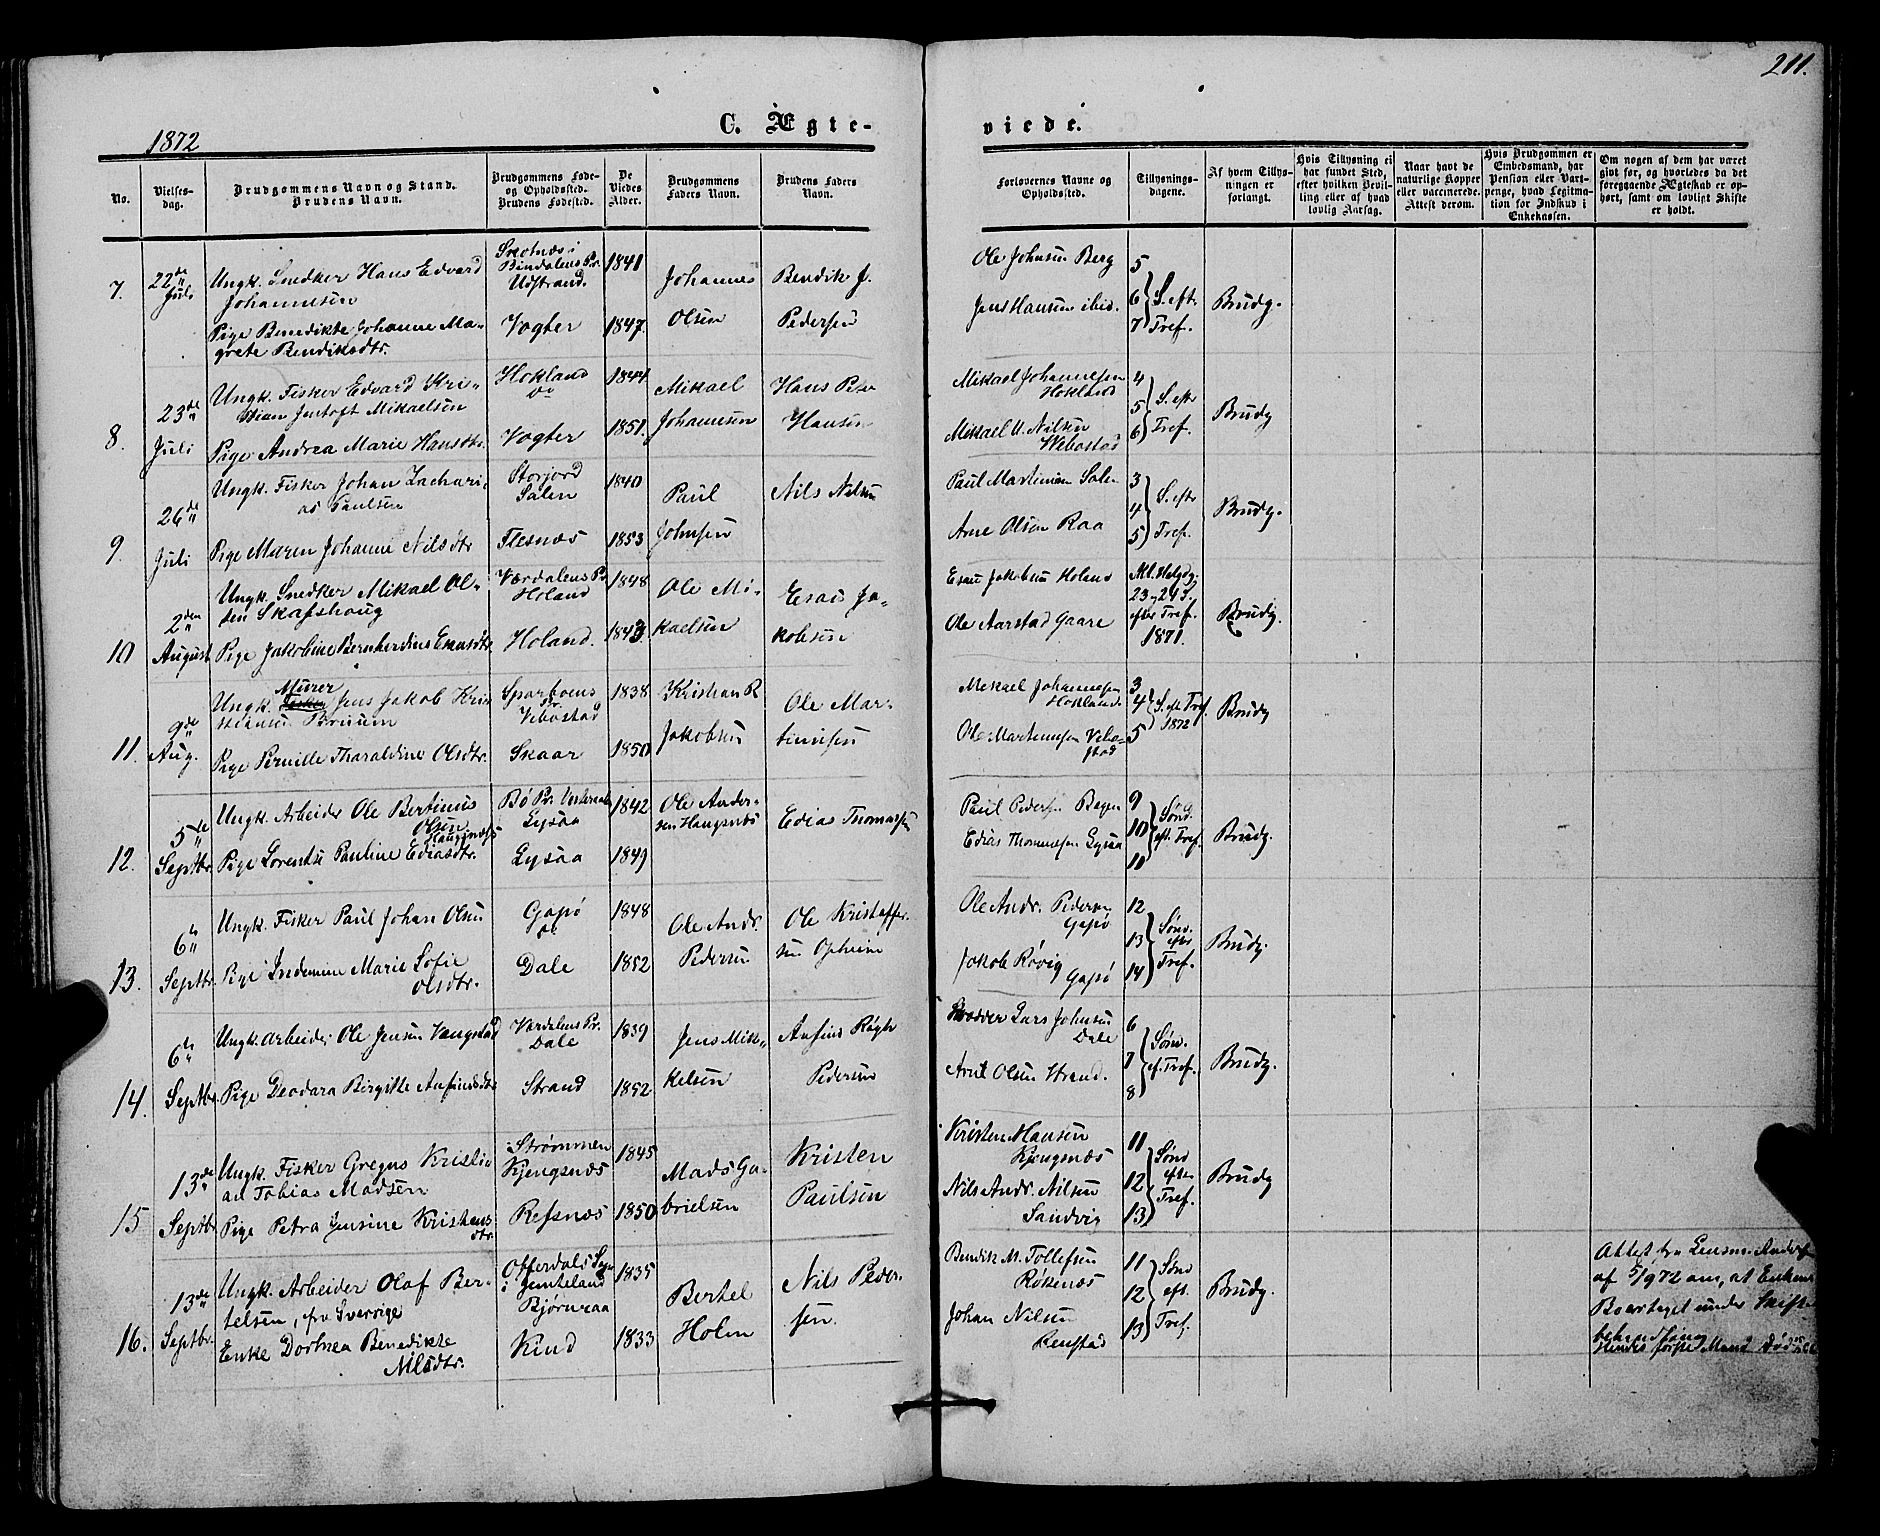 211.
1872
C. Ægte-
viede.
No.
Vielses-
dag.
Brudgommens Navn og Stand.
Brudens Navn.
Brudgommens Føde-
og Opholdssted.
Brudens Fødested.
De
Viedes
Alder.
Brudgommens
Faders Navn.
Brudens Faders
Navn.
Forlovernes Navne og
Opholdssted.
Tillysnings-
dagene.
Af hvem Tillys-
ningen er
forlangt.
Hvis Tillysning ei
har fundet Sted,
efter hvilken Bevil-
ling eller af hvad
lovlig Aarsag.
Naar havt de
naturlige Kopper
eller vaccinerede.
Attest derom.
Hvis Brudgommen er
Embedsmand, har
Pension eller Vart-
penge, hvad Legitima-
tion for Indskud i
Enkekassen.
Om nogen af dem har været
gift før, og hvorledes da det
foregaaende Ægteskab er op-
hørt, samt om lovligt Skifte
er holdt.
7.
22de
Juli
Ungk. Snedker Hans Edvard
Johannesen
Pige Benedikte Johanne Ma-
grete Bendiksdtr.
Bindalens Pr.
Udstrand.
Vogter
1841
1847.
Johannes
Olsen
Bendik J.
Pedersen
Ole Johnsen Berg
Jens Hansen ibid.
5
6
7
S. eft.
Tref.
Brudg.
8.
23de
Juli
Ungk. Fisker Edvard Kri-
stian Jentoft Mikaelsen
Pige Andrea Marie Hansdtr.
Hokland
do
Vogter
1844
1851.
Mikael
Johannesen
Hans Peter
Hansen
Mikael Johannesen
Hokland
Mikael U. Nilsen
Webostad
4
5
6
S. eftr
Tref.
Brudg
9
26de
Juli
Ungk. Fisker Johan Zachari-
as Paulsen
Pige Maren Johanne Nilsdtr
Storjord
Salen
Flesnæs
1840
1853
Paul
Johnsen
Nils Nilsen
Paul Martinsen Salen
Arne Olsen Raa
3
4
5
S. eftr
Tref.
Brudg.
10
2den
August
Ungk. Snedker Mikael Ol-
sen Skafshoug
Pige Jakobine Bernherdine Esausdtr
Værdalens Pr
Holand
Holand.
1848
1843
Ole Mi-
kaelsen
Esaus Ja-
kobsen
Esau Jakobsen Holand
Ole Aarstad Gaare
Mk. Helgdg.
23 24 S.
efter Tref.
1871.
Brudg.
11.
9de
Aug.
Ungk. Murer Jens Jakob Kris
stiansen
Pige Pernille Tharaldine Olsdtr.
Sparboens
Pr
Vebostad
Skaar
1838
1850
Kristian R
Jakobsen
Ole Mar-
tinusen
Mekael Johannesen
Hokland.
Ole Martinusen Vebo-
stad
3
4
5
S. eft Tref.
1872
Brudg
12.
5te
Septbr.
Ungk. Arbeider Ole Bertinus
Olsen
Haugsnæs
Pige Lorentse Pauline Ediasdtr.
Bø Pr. Vesteraalen
Lysaa
Lysaa
1842
1849
Ole Ander-
sen Haugsnæs
Edias Thomassen
Paul Pedersen
Edias Thomassen Lysaa
9
10
11
Sønd.
eft. Tref.
Brudg.
13.
6te
Septbr.
Ungk. Fisker Paul Johan Olsen
Pige Indemine Marie Sofie
Olsdtr.
Gapø
do
Dale
1848
1852
Ole Andr.
Pedersen
Ole Kristoffer-
sen Opheim
Ole Andr. Pedersen
Gapø
Jakob Røvig
Gapø
12
13
14
Sønd.
eftr
Tref.
Brudg.
14.
6te
Septbr.
Ungk. Arbeider Ole Jensen Vangstad
Pige Deodara Birgitte Anfinsdtr
Verdalens Pr.
Dale
Strand
1839
1852
Jens Mik-
kelsen
Anfins Røgle
Pedersen
Lars Johnsen
Dale
Arnt Olsen Strand.
6
7
8
Sønd.
ef. Tref.
Brudg.
15
13de
Septbr.
Ungk. Fisker Gregus Kristi-
an Tobias Madsen
Pige Petra Jensine Kristens-
dtr.
Strømmen
Kjengsnæs
Refsnæs
1845
1850
Mads Ga-
brielsen
Kristen
Paulsen
Kristen Hansen
Kjengsnæs
Nils Andr. Nilsen
Sandvig
11
12
13
Sønd
eftr
Tref.
Brudg
16.
13de
Septbr.
Ungk. Arbeider Olaf Ber-
telsen, fra Sverige
Enke Dorthea Benedikte
Nilsdtr.
Offerdals Sogn
i Jemteland
Bjørnraa
Kind
1835
1833
Bertel
Holm
Nils Peder-
sen.
Bendik M. Tollefsen
Røkenæs
Johan Nilsen
Renstad
11
12
13
Sønd
eft.
Tref.
Brudg.
Attest fra Lensm. Anders
af 5/9 72 om, at Enkens
Bo er taget under Skifte-
behandling
Hendes første Mand død